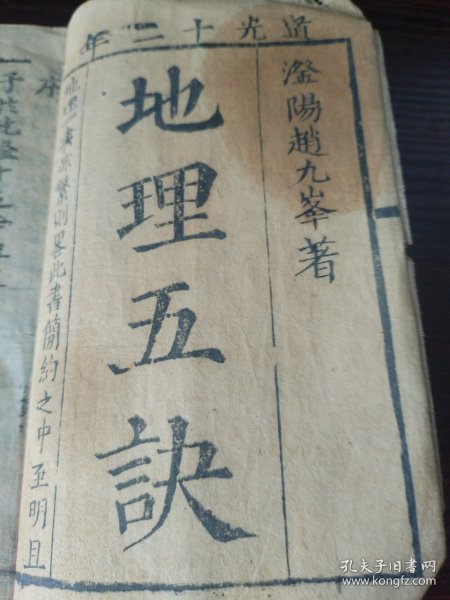 道光十二年
滏陽趙九峯著
地理五訣
地理一書繁則畧此書簡約之中至明且
序
孔夫子旧书网
www.kongfz.com